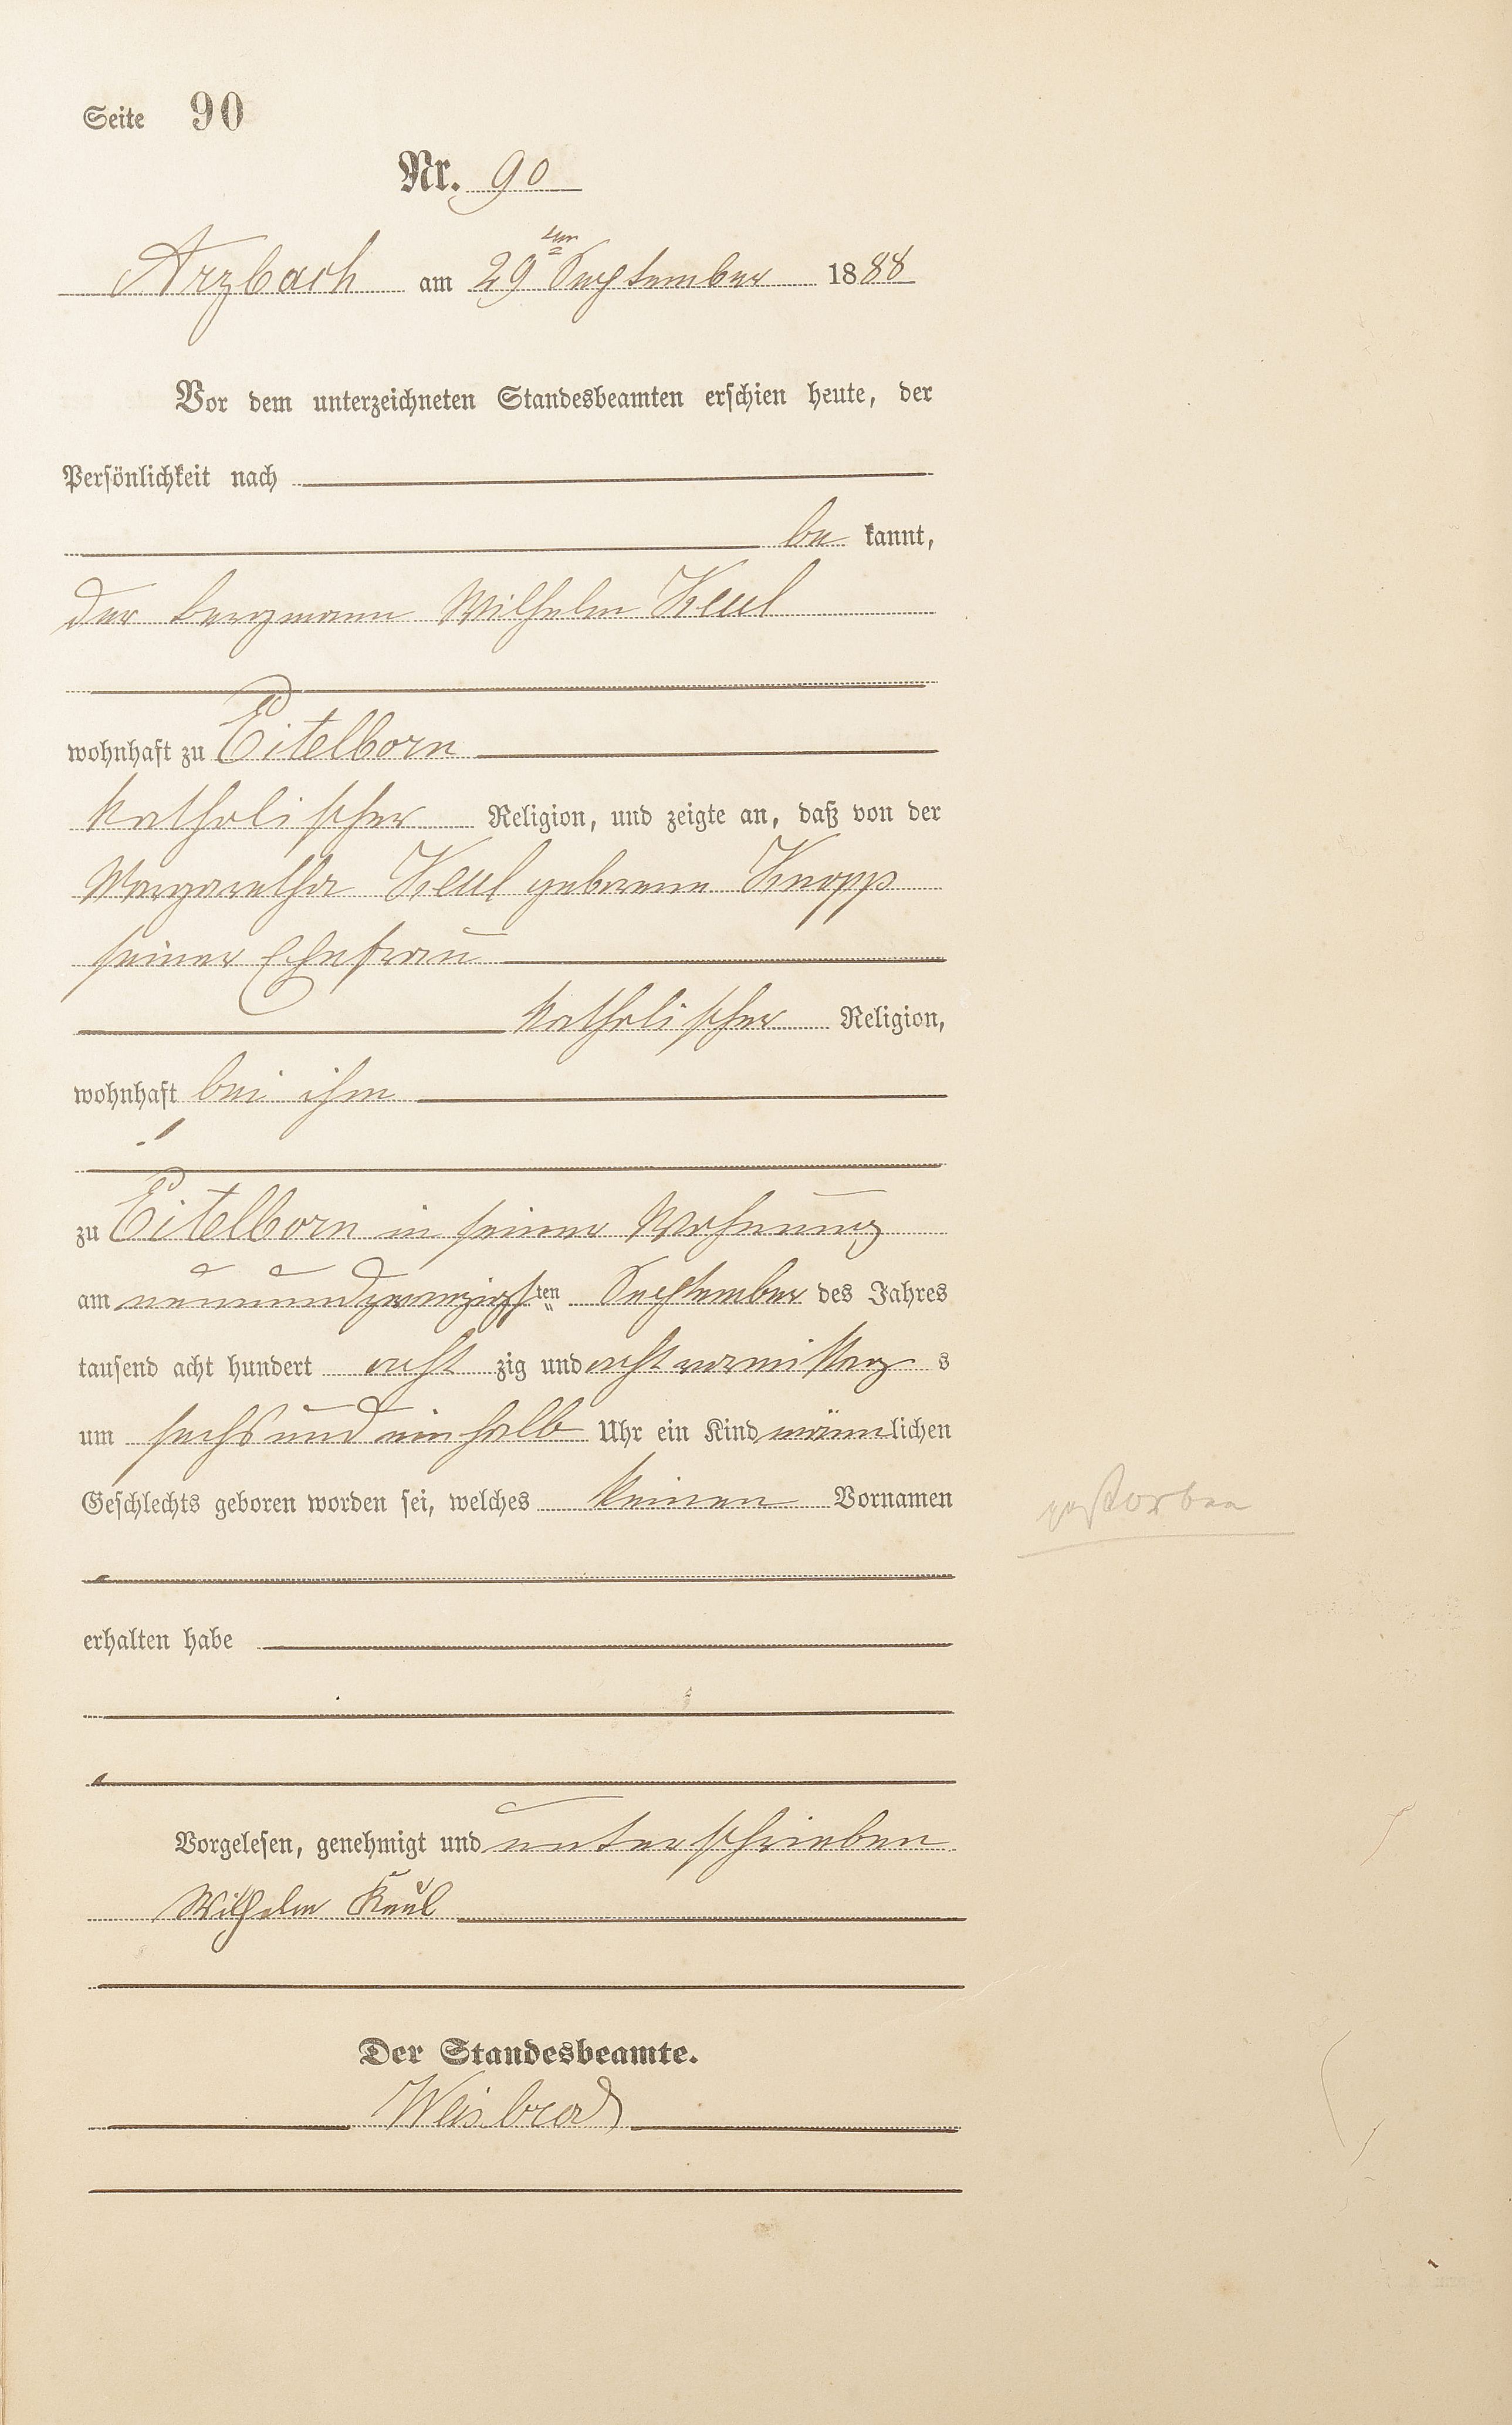 Seite 90
Nr. 90
Arzbach am 29ten September 1888
Vor dem unterzeichneten Standesbeamten erschien heute, der
Persönlichkeit nach
be kannt,
der Bergmann Wilhelm Keul
wohnhaft zu Eitelborn
katholischer Religion, und zeigte an, daß von der
Margaretha Keul geborene Knopp
seiner Ehefrau
katholischer Religion,
wohnhaft bei ihm
zu Eitelborn in seiner Wohnung
am neunundzwanzigsten September des Jahres
tausend acht hundert acht zig und acht vormittag s
um sechs und ein halb Uhr ein Kind männlichen
Geschlechts geboren worden sei, welches keinen Vornamen
gestorben
erhalten habe
Vorgelesen, genehmigt und unterschrieben
Wilhelm Keul
Der Standesbeamte.
Weisbrod